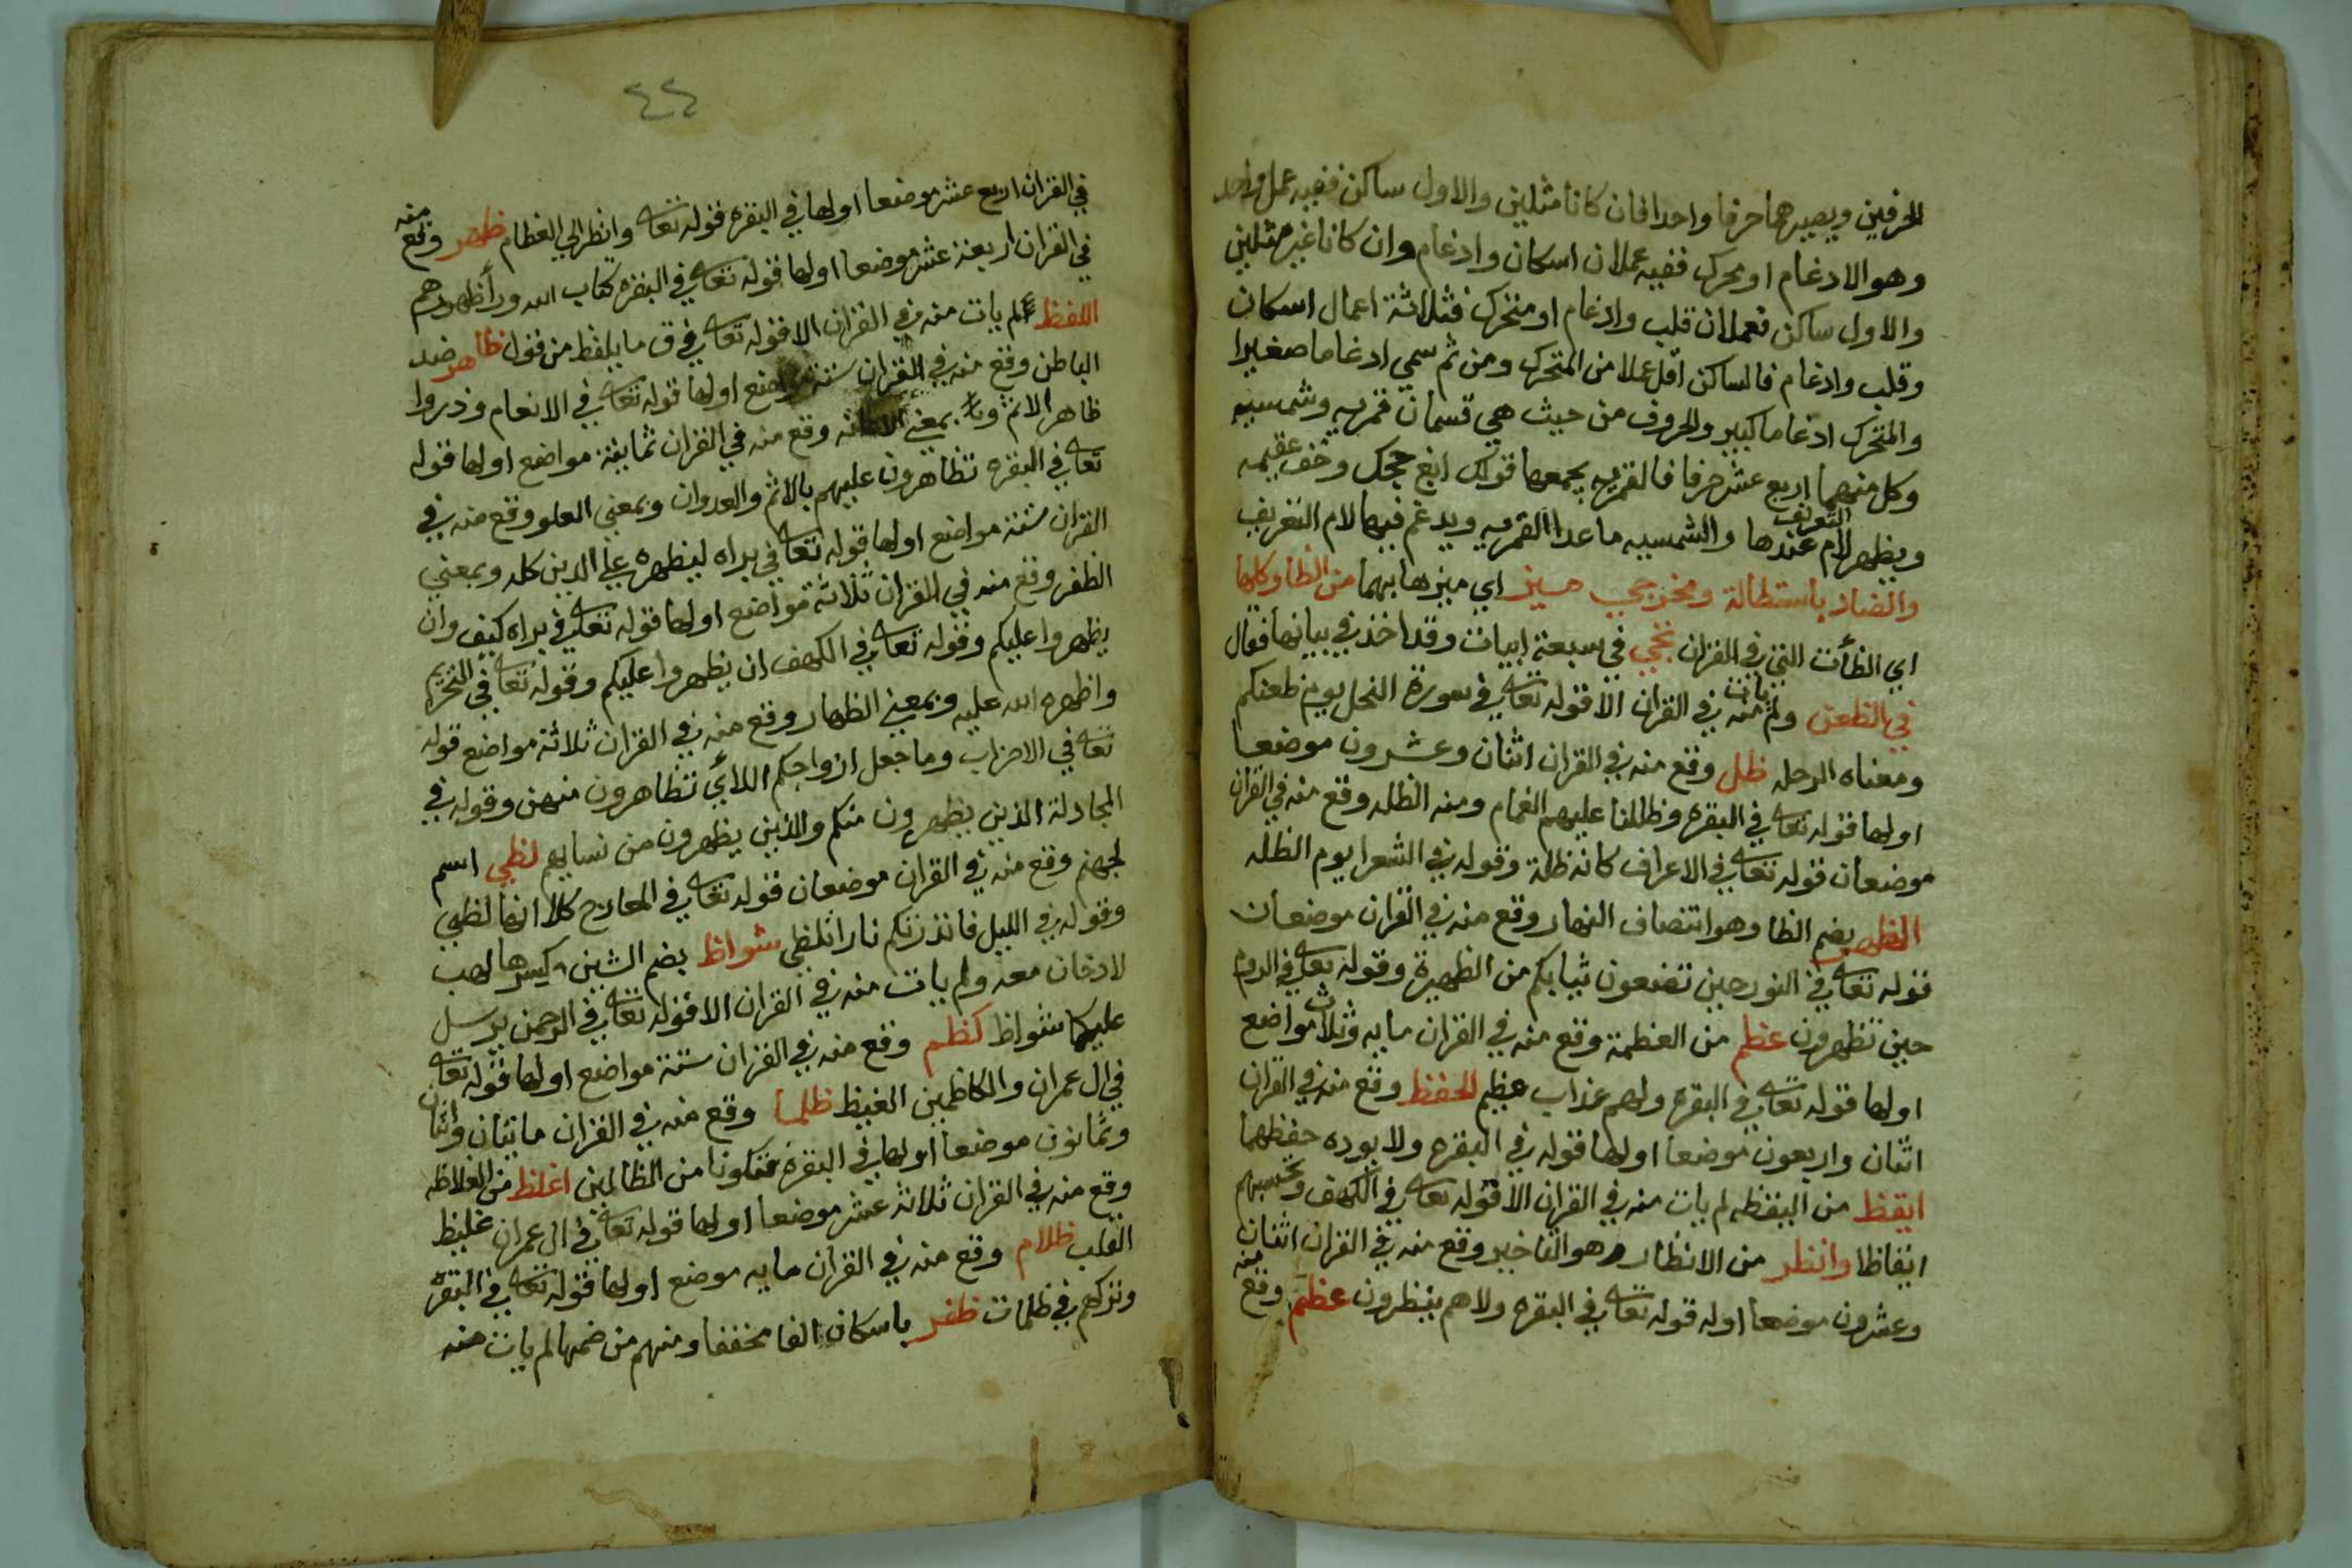 الحرفين ويصيرهما حرفا واحدا فان كانا مثلين والاول ساكن ففيه عمل واحد
وهو الادغام او محرك ففيه عملان اسكان وادغام وان كانا غير مثلين
والاول ساكن فعملان قلب وادغام او متحرك فثلاثة اعمال اسكان
وقلب وادغام فالساكن اقل عملا من المتحرك ومن ثم سمي ادغاما صغيرا
والمتحرك ادغاما كبيرا والحروف من حيث هي قسمان قمريه وشمسيه
وكل منهما اربع عشر حرفا فالقمريه يجمعها قولك ابغ حجك وخف عقيمه
ويظهر لام التعريف عندها والشمسيه ما عدا القمريه ويدغم فيها لام التعريف
والضاد باستطالة ومخرجي ميز اي ميزها بهما من الظا وكلها
اي الظأت التي في القران تجي في سبعة ابيات وقد اخذ في بيانها فقال
في الظعن ولم يات منه في القران الا قوله تعالى في سورة النحل يوم ظعنكم
ومعناه الرحله ظل وقع منه في القران اثنان وعشرون موضعا
اولها قوله تعالى في البقره وظللنا عليهم الغمام ومنه الظله وقع منه في القران
موضعان قوله تعالى في الاعراف كانه ظلة وقوله في الشعرا يوم الظله
الظهر بضم الظا وهو انتصاف النهار وقع منه في القران موضعان
قوله تعالى في النور حين تضعون ثيابكم من الظهيرة وقوله تعالى في الروم
حين تظهرون عظم من العظمة وقع منه في القران مايه وثلاث مواضع
اولها قوله تعالى في البقره ولهم عذاب عظيم الحفظ وقع منه في القران
اثنان واربعون موضعا اولها قوله في البقره ولا يوده حفظهما
ايقظ من اليقظه لم يات منه في القران الا قوله تعالى في الكهف وتحسبهم
ايقاظا وانظر من الانظار وهو التاخير وقع منه في القران اثنان
وعشرون موضعا اوله قوله تعالى في البقره ولا هم ينظرون عظم وقع منه
٤٤
في القران اربع عشر موضعا اولها في البقره قوله تعالى وانظر الي العظام ظهر وقع منه
في القران اربعة عشر موضعا اولها قوله تعالى في البقره كتاب الله وراظهورهم
اللفظ لم يات منه في القران الا قوله تعالى في ق ما يلفظ من قول ظاهر ضد
الباطن وقع منه في القران ستة مواضع اولها قوله تعالى في الانعام وذروا
ظاهر الاثم بمعني الاعانه وقع منه في القران ثمانية مواضع اولها قوله
تعالى في البقره تظاهرون عليهم بالاثم والعدوان وبمعني العلو وقع منه في
القران ستة مواضع اولها قوله تعالى في براه ليظهره علي الدين كله وبمعني
الظفر وقع منه في القران ثلاثة مواضع اولها قوله تعالى في براه كيف وان
يظهروا عليكم وقوله تعالى في الكهف ان يظهروا عليكم وقوله تعالى في التحريم
واظهره الله عليه وبمعني الظهار وقع منه في القران ثلاثة مواضع قوله
تعالى في الاحزاب وما جعل ازواجكم اللائي تظاهرون منهن وقوله في
المجادلة الذين يظهرون منكم والذين يظهرون من نسايهم لظي اسم
لجهنم وقع منه في القران موضعان قوله تعالى في المعارج كلا انها لظي
وقوله في الليل فانذرتكم نارا تلظي شواظ بضم الشين وكسرها لهب
لا دخان معه ولم يات منه في القران الا قوله تعالى في الرحمن يرسل
عليكما شواظ كظم وقع منه في القران ستة مواضع اولها قوله تعالى
في ال عمران والكاظمين الغيظ ظلما وقع منه في القران مائتان واثنان
وثمانون موضعا اولها في البقره فتكونا من الظالمين اغلظ من الغلاظه
وقع منه في القران ثلاثة عشر موضعا اولها قوله تعالى في ال عمران غليظ
القلب ظلام وقع منه في القران مايه موضع اولها قوله تعالى في البقره
وتركهم في ظلمات ظفر باسكان الفا مخففا ومنهم من ضمها لم يات منه